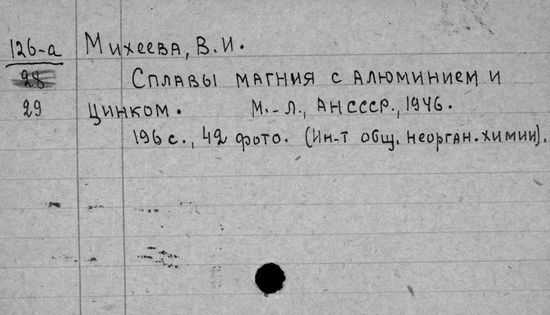 126-а Михеева, В. И.
28 Сплавы магния с алюминием и
29 цинком. М.-Л., АН СССР., 1946.
196 с., 42 фото. (Ин-т общ. неорган. химии).